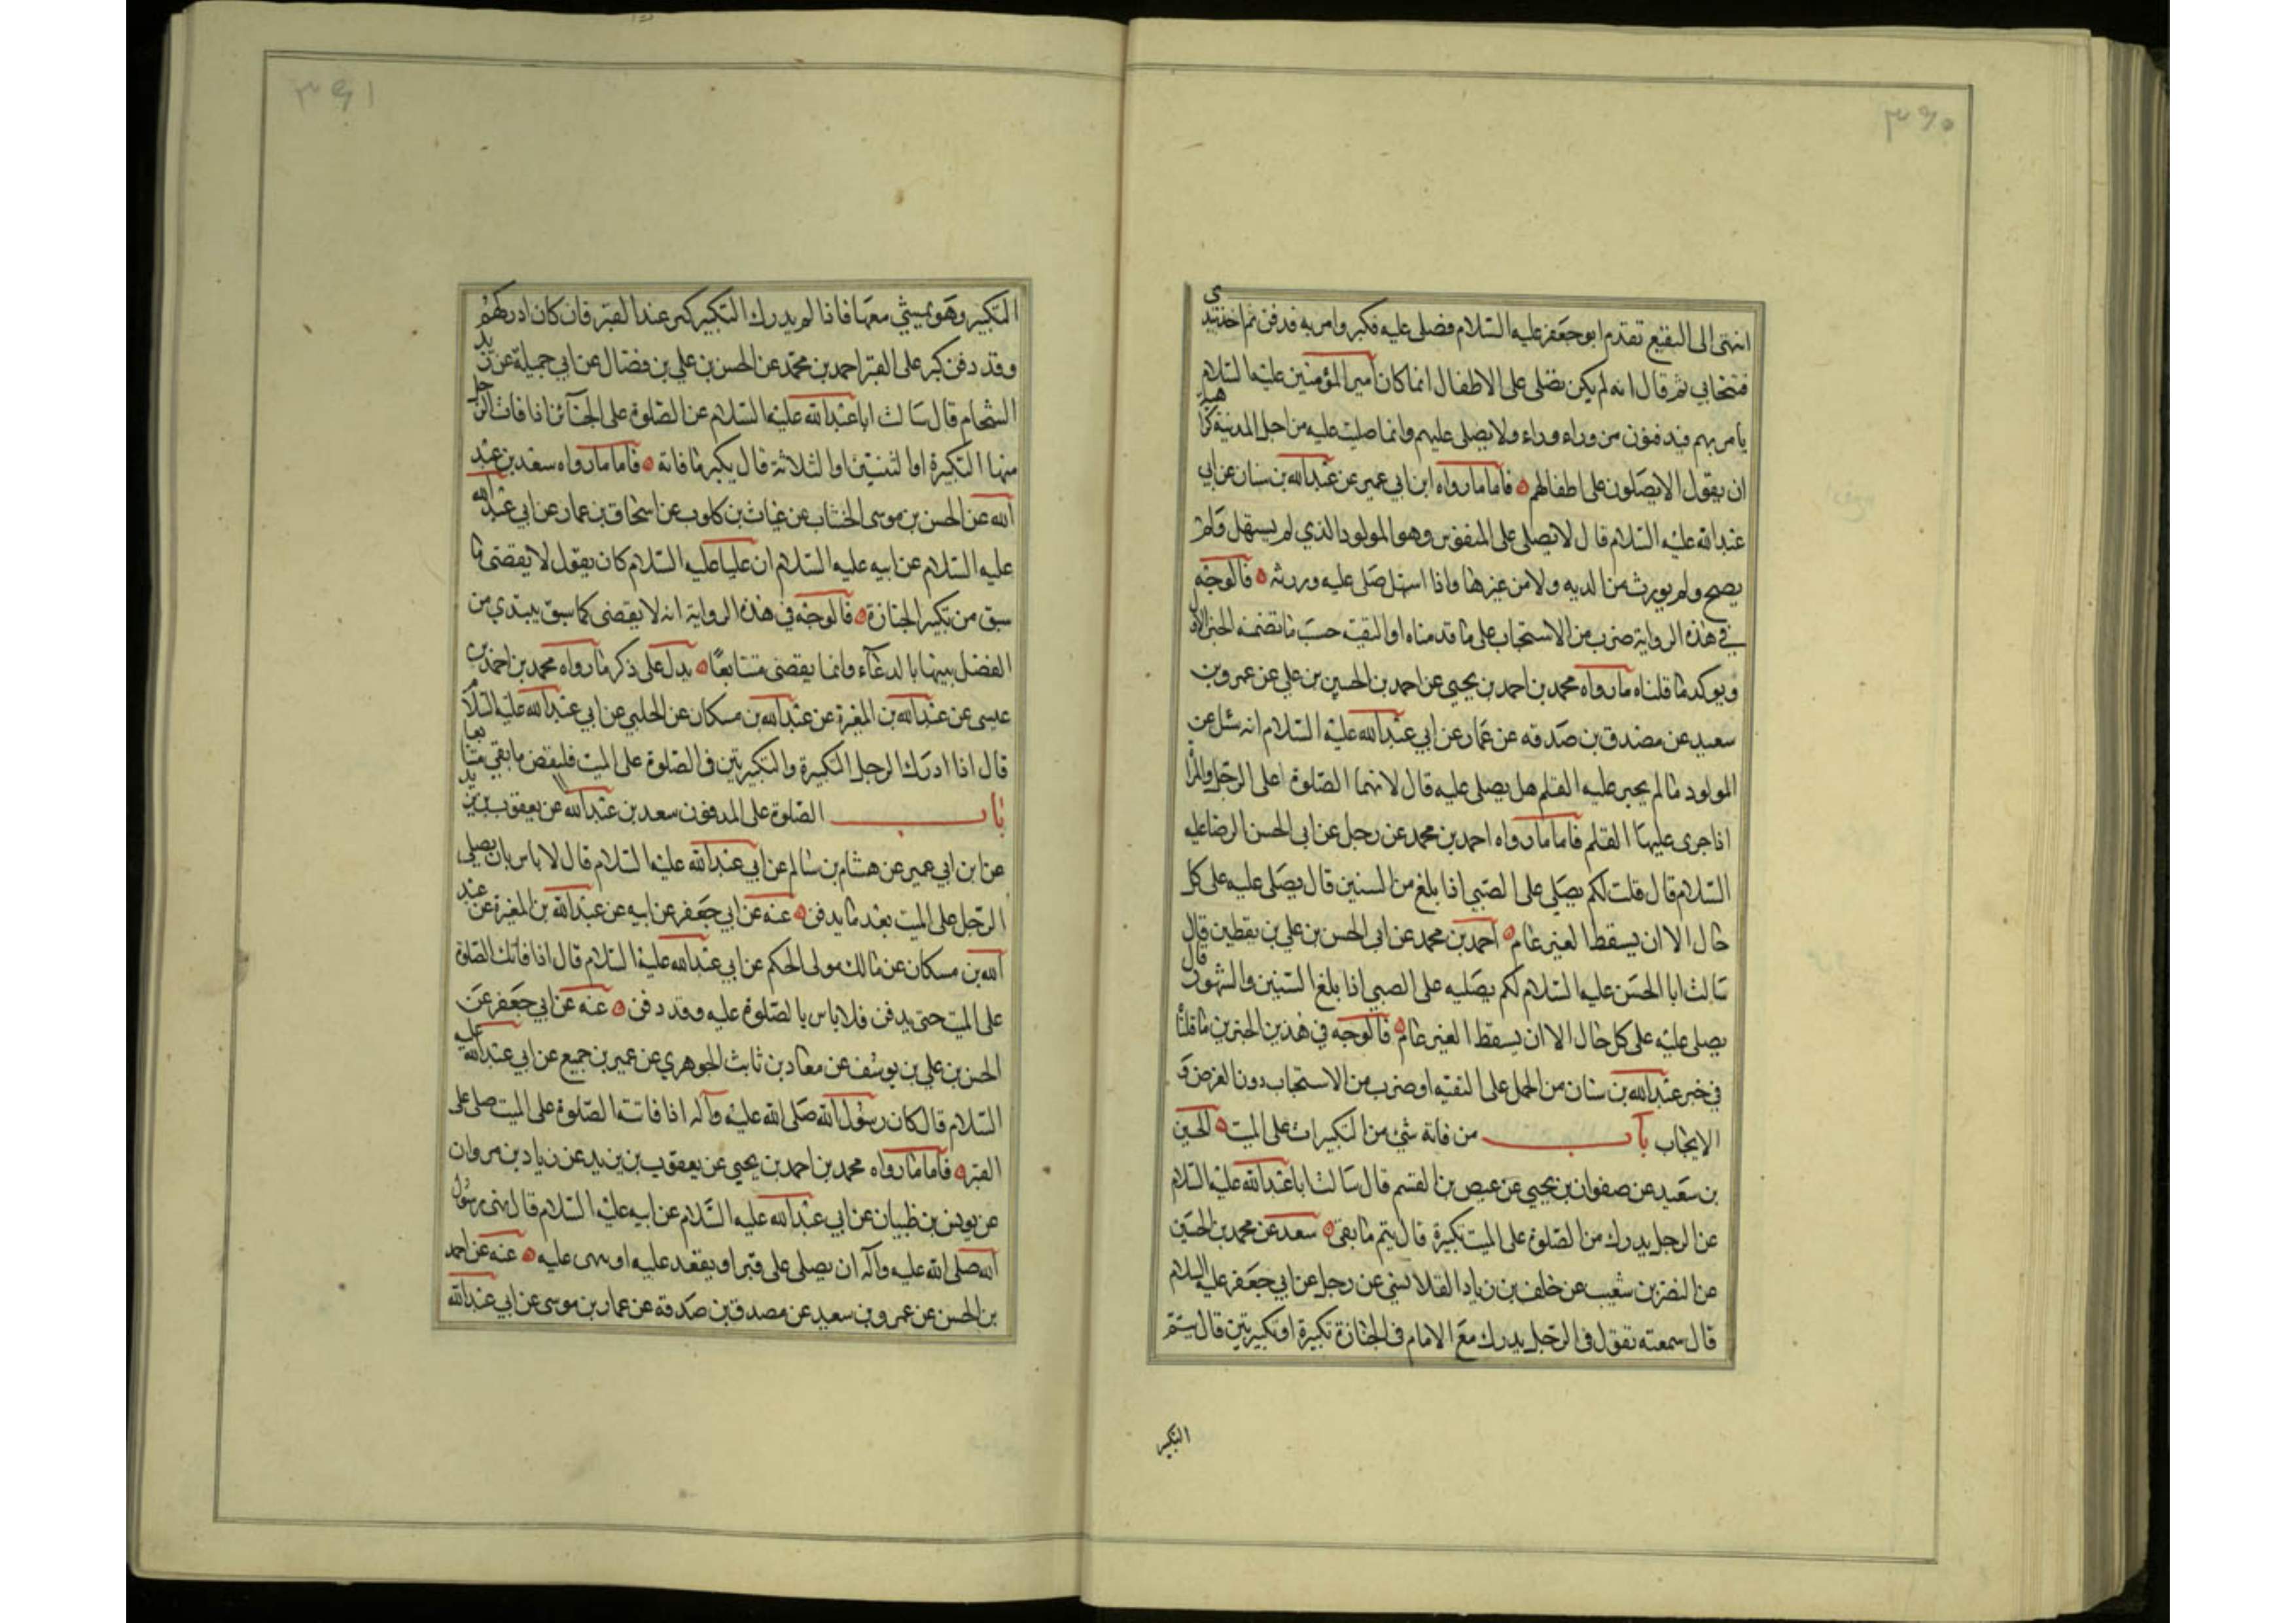 ۳۹۰
انتهى الى البقيع تقدم ابو جعفر عليه السلام فصلى عليه فكبر وامر به فدفن ثم اخذ بيدى
فتنحابي ثم قال انه لم يكن يصلى على الاطفال انما كان امير المؤمنين عليه السلام
يامر بهم فيدفنون من وراء وراء ولا يصلى عليهم وانما صليت عليه من اجل المدينة كراهية
ان يقول الا يصلون على اطفالهم فاما ما رواه ابن ابي عمير عن عبد الله بن سنان عن ابي
عبد الله عليه السلام قال لا تصلى على المنفوس وهو المولود الذي لم يستهل ولم
يصح ولم يورث من الديه ولا من غيرها واذا استهل صل عليه وورثه فالوجه
في هذه الرواية ضرب من الاستحباب على ما قدمناه او التقية حسب ما تضمنه الخبر الاول
ويوكد ما قلناه ما رواه محمد بن احمد بن يحيى عن احمد بن الحسين بن علي عن عمرو بن
سعيد عن مصدق بن صدقه عن عمار عن ابي عبد الله عليه السلام انه سئل عن
المولود ما لم يجر عليه القلم هل يصلى عليه قال لا انما الصلوة على الرجل والمراة
اذا جرى عليهما القلم فاما ما رواه احمد بن محمد عن رجل عن ابي الحسن الرضا عليه
السلام قال قلت لكم يصلى على الصبي اذا بلغ من السنين قال يصلى عليه على كل
حال الا ان يسقط لغير تمام احمد بن محمد عن ابي الحسن بن علي بن يقطين قال
سالت ابا الحسن عليه السلام لكم يصليه على الصبي اذا بلغ السنين والشهور قال
يصلى عليه على كل حال الا ان يسقط لغير تمام فالوجه في هذين الخبرين ما قلنا
في خبر عبد الله بن سنان من الحمل على التقيه او ضرب من الاستحباب دون الفرض و
الايجاب باب من فاته شيئ من التكبيرات على الميت الحسين
بن سعيد عن صفوان بن يحيى عن عيص بن القسم قال سالت ابا عبد الله عليه السلام
عن الرجل يدرك من الصلوة على الميت تكبيرة قال يتم ما بقى سعد عن محمد بن الحسين
عن النضر بن شعيب عن خلف بن زياد القلانسي عن رجل عن ابي جعفر عليه السلام
قال سمعته يقول في الرجل يدرك مع الامام في الجنازة تكبيرة او تكبيرتين قال يتم
التكبير
۳۹۱
التكبير وهو يمشي معها فاذا لم يدرك التكبير كبر عند القبر فان كان ادركهم
وقد دفن كبر على القبر احمد بن محمد عن الحسن بن علي بن فضال عن ابي جميلة عن زيد
الشحام قال سالت ابا عبد الله عليه السلام عن الصلوة على الجنآئز اذا فات الرجل
منها التكبيرة او الثنتين او الثلاثة قال يكبر ما فاته فاما ما رواه سعد بن عبد
الله عن الحسن بن موسى الخشاب عن غياث بن كلوب عن اسحاق بن عمار عن ابي عبد الله
عليه السلام عن ابيه عليه السلام ان عليا عليه السلام كان يقول لا يقضى ما
سبق من تكبير الجنازة فالوجه في هذه الرواية انه لا يقضى كما سبق يبتدي من
الفصل بينها بالدعآء وانما يقضى متتابعًا يدل على ذكر ما رواه محمد بن احمد بن
عيسى عن عبد الله بن المغيرة عن عبد الله بن مسكان عن الحلبي عن ابي عبد الله عليه السلام
قال اذا ادرك الرجل التكبيرة والتكبيرتين في الصلوة على الميت فليقض ما بقي متتابعا
باب الصلوة على المدفون سعد بن عبد الله عن يعقوب بن يزيد
عن ابن ابي عمير عن هشام بن سالم عن ابي عبد الله عليه السلام قال لا باس بان يصلى
الرجل على الميت بعد ما يدفن عنه عن ابي جعفر عن ابيه عن عبد الله بن المغيرة عن عبد
الله بن مسكان عن مالك مولى الحكم عن ابي عبد الله عليه السلام قال اذا فاتك الصلوة
على الميت حتى يدفن فلا باس بالصلوة عليه وقد دفن عنه عن ابي جعفر عن
الحسن بن علي بن يوسف عن معاد بن ثابت الجوهري عن عمير بن جميع عن ابي عبد الله عليه
السلام قال كان رسول الله صلى الله عليه وآله اذا فاتته الصلوة على الميت صلى على
القبر فاما ما رواه محمد بن احمد بن يحيى عن يعقوب بن يزيد عن زياد بن مروان
عن يونس بن ظبيان عن ابي عبد الله عليه السلام عن ابيه عليه السلام قال نهى رسول
الله صلى الله عليه وآله ان يصلى على قبر او يقعد عليه او يبنى عليه عنه عن احمد
بن الحسن عن عمرو بن سعيد عن مصدق بن صدقة عن عمار بن موسى عن ابي عبد الله